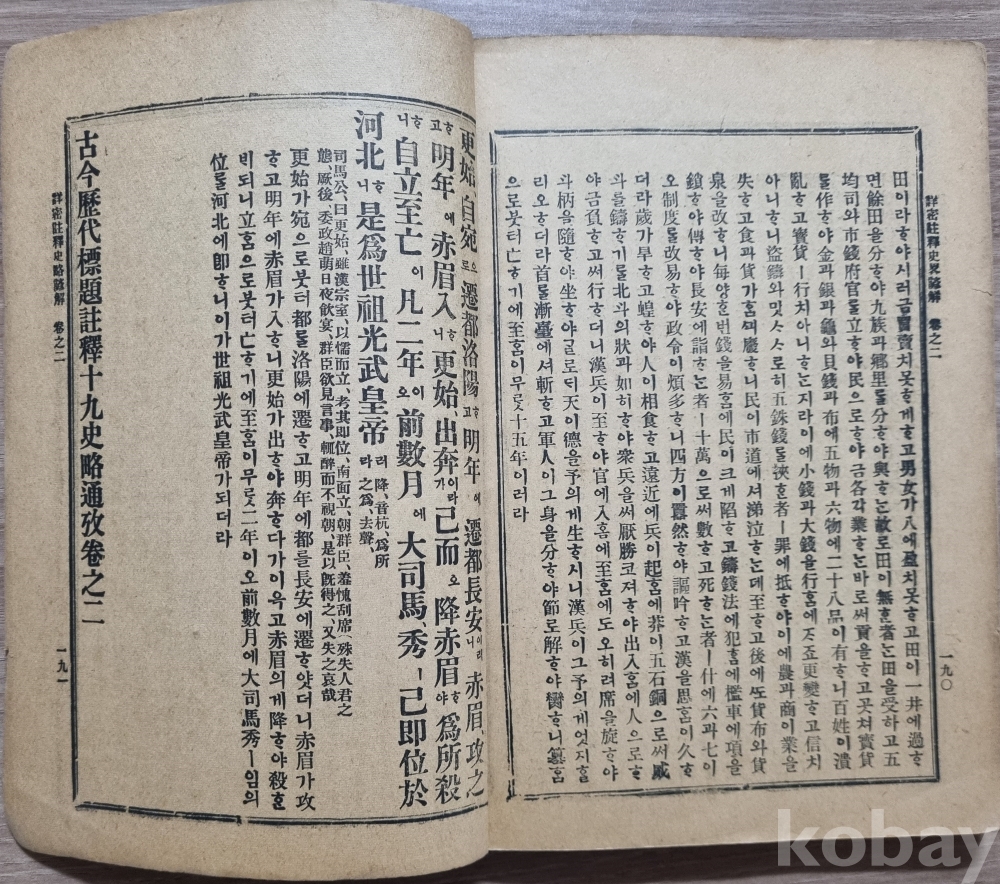 詳密註釋史畧諺解 卷之二 一九〇
田이라ᄒᆞ야서러금賣買치못ᄒᆞ게ᄒᆞ고男女가八에盈치못ᄒᆞ고田이一井에過ᄒᆞ
면餘田을分ᄒᆞ야九族과鄕里를分ᄒᆞ야與ᄒᆞ는故로田이無ᄒᆞᆫ者는田을受하고五
均司와市錢府官을立ᄒᆞ야民으로ᄒᆞ야금各각業ᄒᆞ는바로써貢을ᄒᆞ고ᄯᅩ寶貨
를作ᄒᆞ야金과銀과龜와貝錢과布에五物과六物에二十八品이有ᄒᆞ니百姓이潰
亂ᄒᆞ고寶貨ㅣ行치아니ᄒᆞ는지라이에小錢과大錢을行ᄒᆞᆷ에ᄌᆞ조更變ᄒᆞ고信치
아니ᄒᆞ니盜鑄와밋ᄉᆞᄉᆞ로히五銖錢을挾ᄒᆞᆫ者ㅣ罪에抵ᄒᆞ야이에農과商이業을
失ᄒᆞ고食과貨가ᄒᆞᆷ긔廢ᄒᆞ니民이市道에셔涕泣ᄒᆞ는데至ᄒᆞ고後에ᄯᅩ貨布와貨
泉을改ᄒᆞ니每양번錢을易ᄒᆞᆷ에民이크게陷ᄒᆞ고鑄錢法에犯ᄒᆞᆷ에檻車에項을
鎖ᄒᆞ야傳ᄒᆞ야長安에詣ᄒᆞ는者ㅣ十萬으로써數ᄒᆞ고死ᄒᆞ는者ㅣ什에六과七이
오制度를改易ᄒᆞ야政令이煩多ᄒᆞ니四方이囂然ᄒᆞ야謳吟ᄒᆞ고漢을思ᄒᆞᆷ이久ᄒᆞ
더라歲가旱ᄒᆞ고蝗ᄒᆞ야人이相食ᄒᆞ고遠近에兵이起ᄒᆞᆷ에莽이五石銅으로써威
斗를鑄ᄒᆞ기를北斗의狀과如히ᄒᆞ야衆兵을써厭勝코져ᄒᆞ야出入ᄒᆞᆷ에人으로ᄒᆞ
야금負ᄒᆞ고써行ᄒᆞ더니漢兵이至ᄒᆞ야官에入ᄒᆞᆷ에至ᄒᆞᆷ에도오히려席을旋ᄒᆞ야
斗柄을隨ᄒᆞ야坐ᄒᆞ야ᄀᆞᆯ로ᄃᆡ天이德을予의게生ᄒᆞ시니漢兵이그予의게엇지ᄒᆞ
리오ᄒᆞ더라首를漸臺에셔斬ᄒᆞ고軍人이그身을分ᄒᆞ야節로解ᄒᆞ야臠ᄒᆞ니簒ᄒᆞᆷ
으로붓터亡ᄒᆞ기에至ᄒᆞᆷ이무릇十五年이러라
更始、自宛으로遷都洛陽ᄒᆞ고明年에遷都長安이러니赤眉、攻之
ᄒᆞ고明年에赤眉入ᄒᆞ니更始、出奔이라가已而오降赤眉ᄒᆞ야爲所殺
ᄒᆞ니自立至亡이凡二年이오前數月에大司馬、秀ㅣ已即位於
河北ᄒᆞ니是爲世祖光武皇帝러라 降、音杭、爲所之爲、去聲、
司馬公、曰更始、雖漢宗室、以懦而立、考其即位、南面立、朝群臣、羞愧刮席(殊失人君之
態、厥後、委政趙萌日夜飮宴、群臣欲見言事、輒醉而不視朝、是以既得之、又失之哀哉
更始가宛으로붓터都를洛陽에遷ᄒᆞ고明年에都를長安에遷ᄒᆞ얏더니赤眉가攻
ᄒᆞ고明年에赤眉가入ᄒᆞ니更始가出ᄒᆞ야奔ᄒᆞ다가이윽고赤眉의게降ᄒᆞ야殺ᄒᆞᆫ
비되니立ᄒᆞᆷ으로붓터亡ᄒᆞ기에至ᄒᆞᆷ이무릇二年이오前數月에大司馬秀ㅣ임의
位를河北에即ᄒᆞ니이가世祖光武皇帝가되더라
古今歷代標題註釋十九史略通攷卷之二
詳密註釋史略諺解 卷之二 一九一
kobay